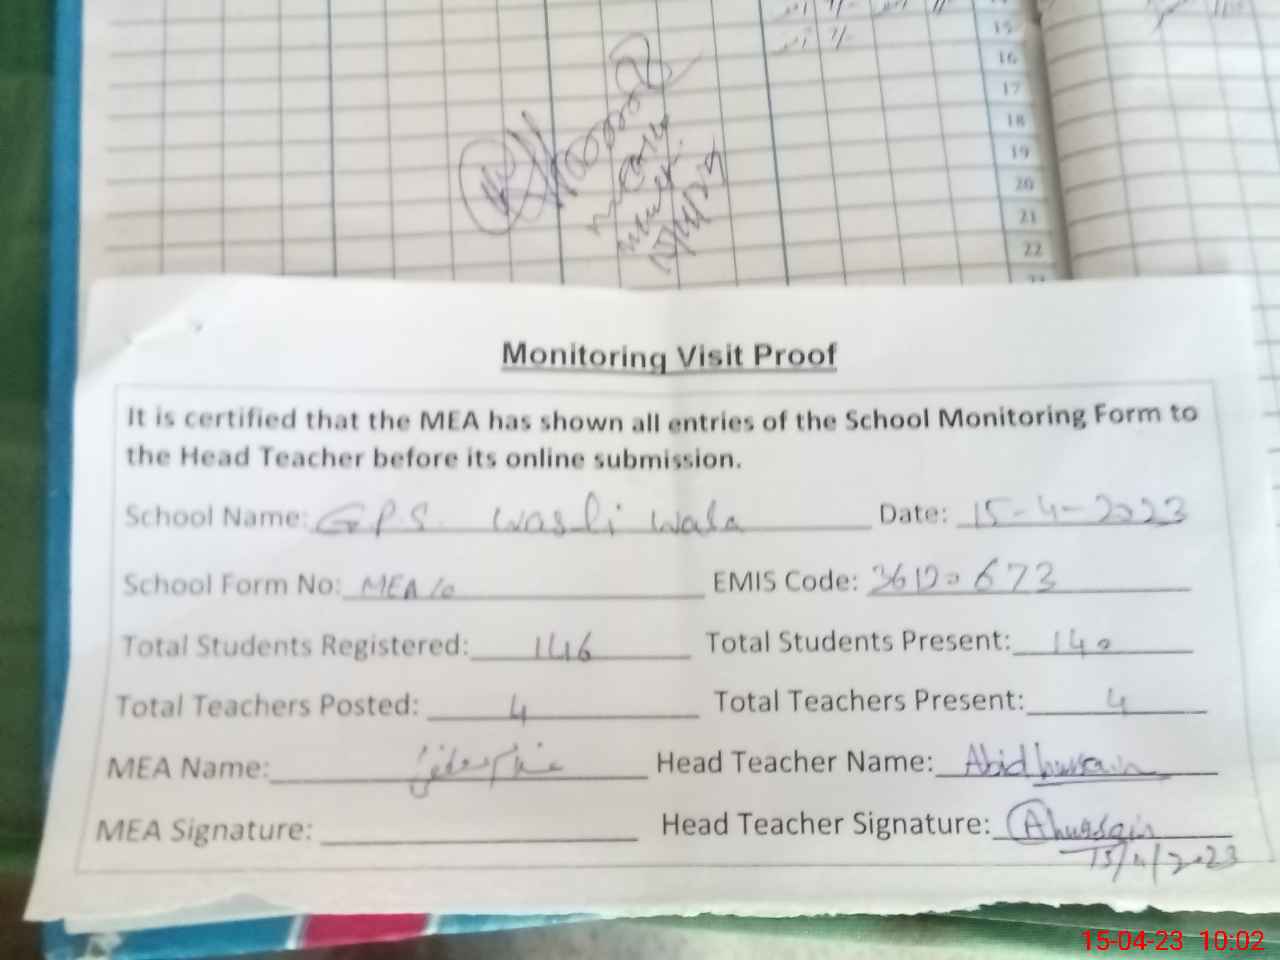 15
16
17
18
19
20
21
22
15/4/23
Monitoring Visit Proof
It is certified that the MEA has shown all entries of the School Monitoring Form to
the Head Teacher before its online submission.
School Name: GPS. Wasli Wala Date: 15-4-2023
School Form No: MEA 10 EMIS Code: 36120673
Total Students Registered: 146 Total Students Present: 140
Total Teachers Posted: 4 Total Teachers Present: 4
MEA Name: Head Teacher Name: Abid hussain
MEA Signature: Head Teacher Signature: Ahussain
15/4/2023
15-04-23 10:02